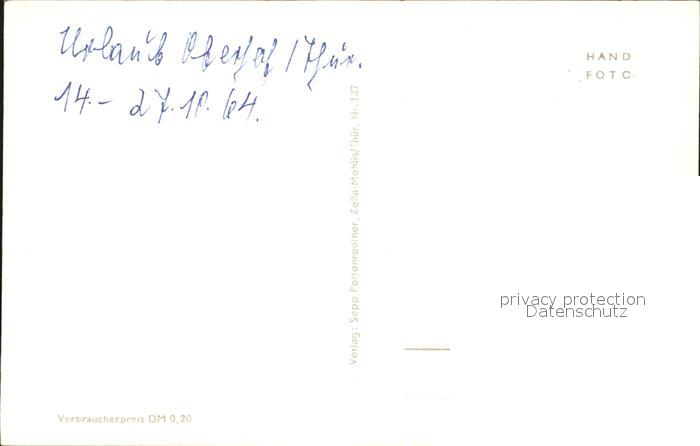 Urlaub Oberhof / Thür.
14. - 27. 10. 64.
HAND
FOTO
Verlag: Sepp Portenreuther, Zella-Mehlis/Thür. Nr. 137
privacy protection
Datenschutz
Verbraucherpreis DM 0,20